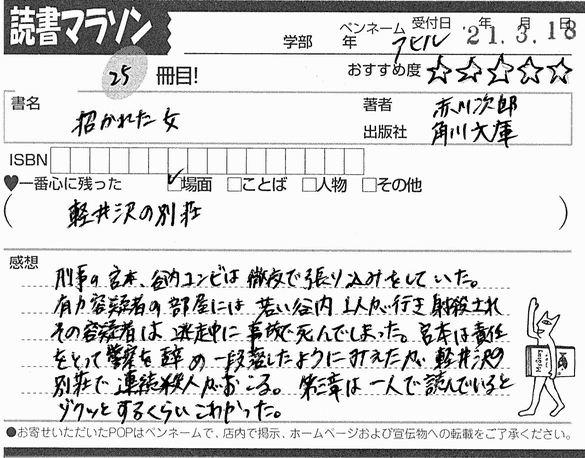 読書マラソン
学部 年 ペンネーム アヒル 受付日 '21.3.18 年 月 日
25 冊目!
おすすめ度 ☆☆☆☆☆
書名 招かれた女
著者 赤川次郎
出版社 角川文庫
ISBN
♥一番心に残った ☑場面 □ことば □人物 □その他
( 軽井沢の別荘 )
感想
刑事の宮本、谷内コンビは徹夜で張り込みをしていた。
有力容疑者の部屋には若い谷内1人が行き射殺され
その容疑者は逃走中に事故で死んでしまった。宮本は責任
をとって警察を辞め一段落したように見えたが軽井沢の
別荘で連続殺人がおこる。第三章は一人で読んでいると
ゾクッとするくらいこわかった。
●お寄せいただいたPOPはペンネームで、店内で掲示、ホームページおよび宣伝物への転載をご了承ください。